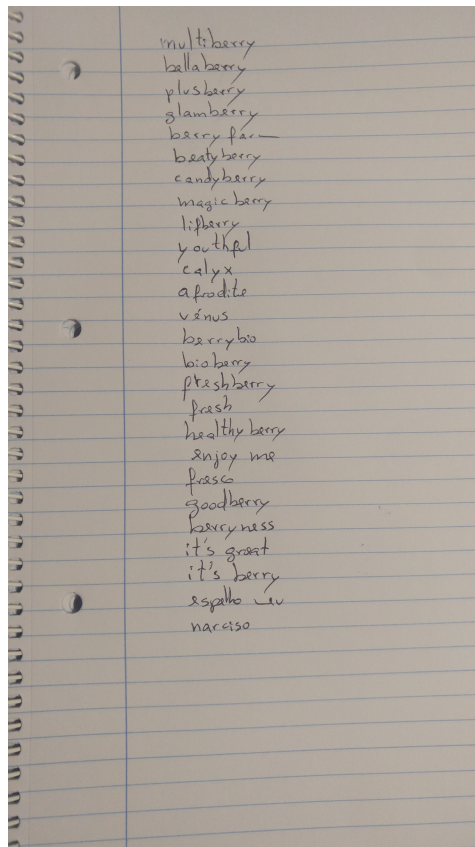 multiberry
bellaberry
plusberry
glamberry
berry
beatyberry
candyberry
magic berry
lifberry
youthful
calyx
afrodite
vénus
berrybio
bioberry
freshberry
fresh
healthy berry
enjoy me
fresco
goodberry
berryness
it's great
it's berry
narciso